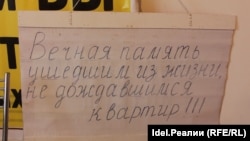 Вечная память
ушедшим из жизни,
не дождавшимся
квартир!!!
Idel.Реалии (RFE/RL)